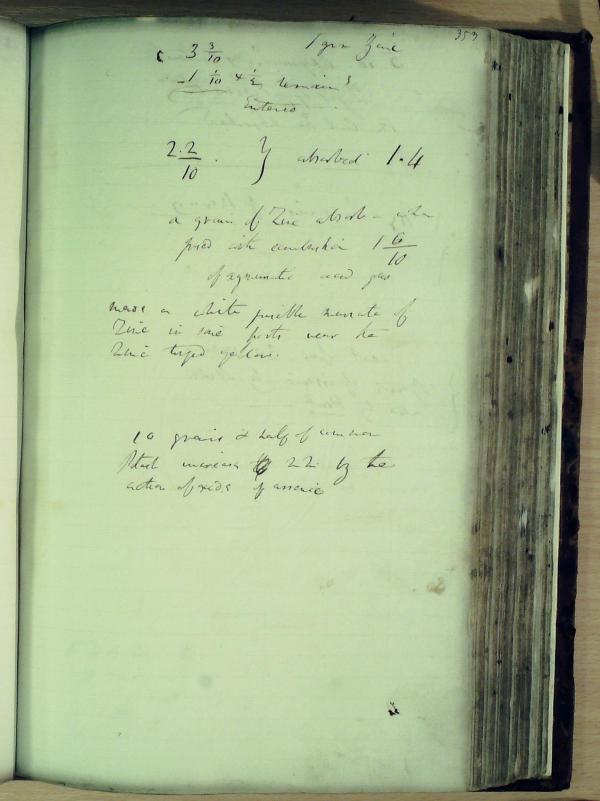 353
3 3/10 1 grn Zinc
1 1/10 & 1/2 remains
2.2/10 } absorbed 1.4
a grain of Zinc absorb - when
fused with combustion 1 6/10
of oxymuriatic acid gas
mass a white fusible muriate of
Zinc in some parts near the
Zinc tinged yellow.
10 grains & half of common
Potash increase 22 by the
action of oxide of arsenic